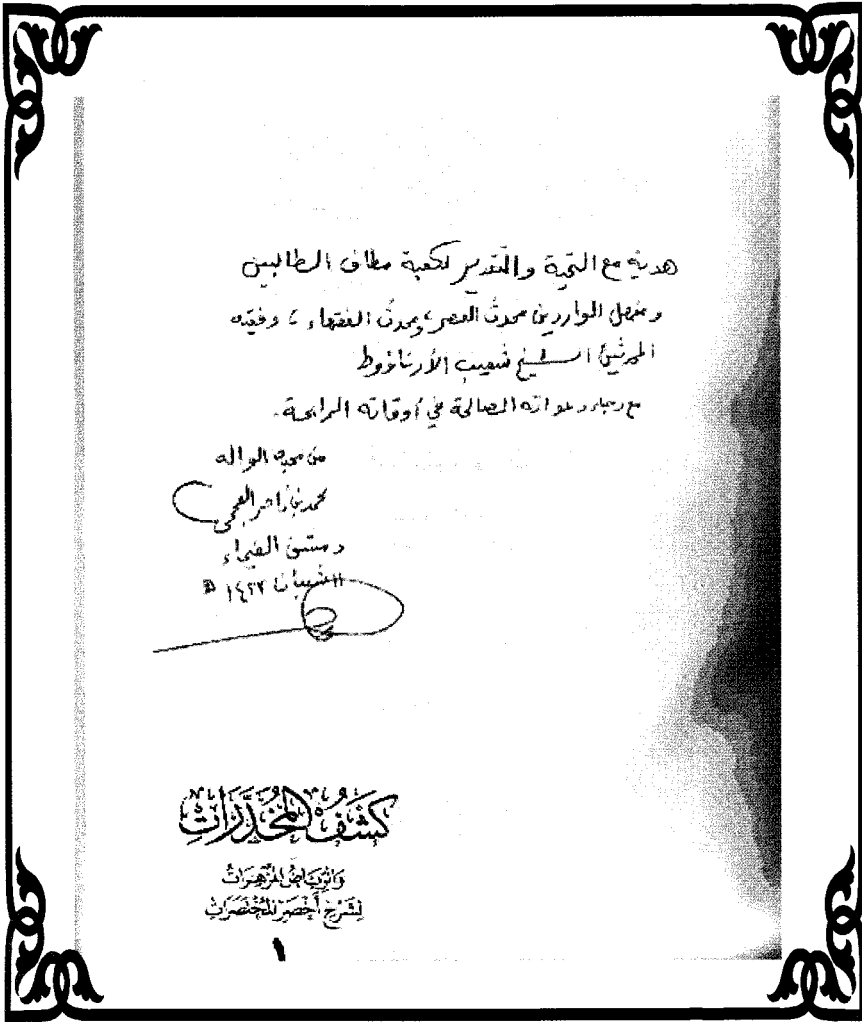 هدية مع التحية والتقدير لكعبة مطاف الطالبين
الواردين محدث العصر، ومحدث الفقهاء، وفقيه
المحدثين الشيخ شعيب الأرناؤوط
مع رجاء دعواته الصالحة في أوقاته الرابحة.
من محبه الواله
محمد بن ناصر العجمي
دمشق الفيحاء
١١ شعبان ١٤٢٣ هـ
كَشْفُ المُخَدَّرَاتِ
وَالرِّيَاضُ المُزْهِرَاتُ
لِشَرْحِ أَخْصَرِ المُخْتَصَرَاتِ
١